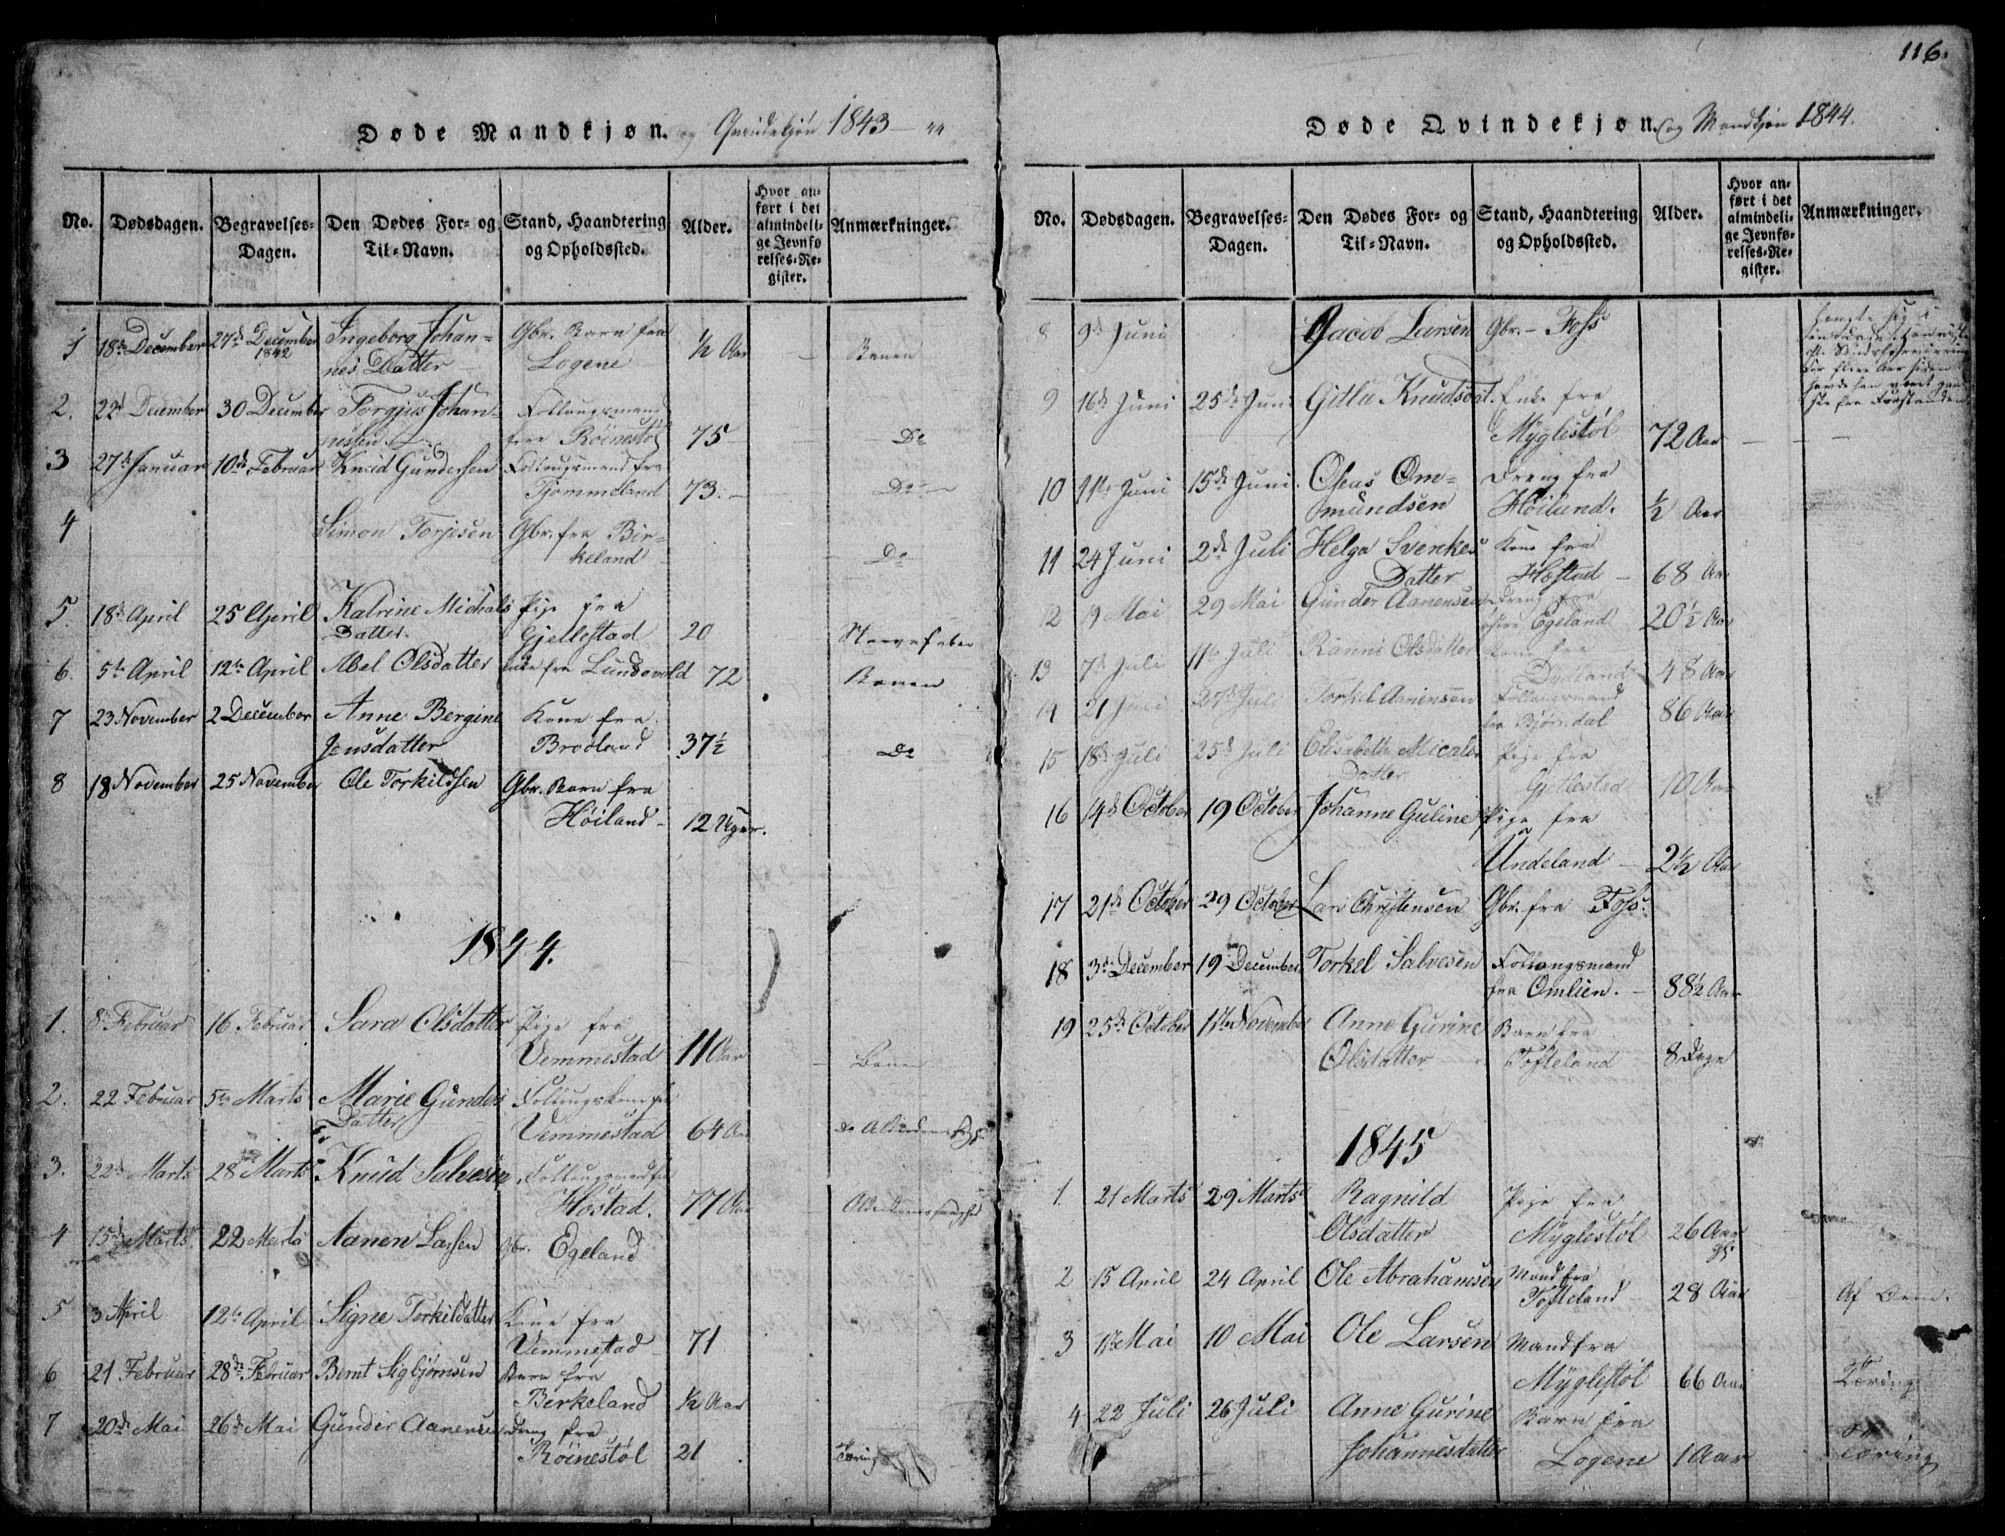 Døde Mandkjøn. og Qvindekjøn 1843 - 44
No. Dødsdagen. Begravelses-Dagen. Den Dødes For- og Til-Navn. Stand, Haandtering og Opholdssted. Alder. Hvor anført i det almindelige Jevnførelses-Register. Anmærkninger.
1 18de December 27de December 1842 Ingeborg Johannes Datter Gbr. Barn fra Logene ½ Aar
2. 22d December 30 December Torgius Johannessen Follaugsmand fra Röinestöl 75 Do
3 27de Januar 10de Februar Knud Gundersen Follaugsmand fra Tjommeland 73. Do
4 Simon Torjesen Gbr. fra Birkeland Do
5. 18de April 25 April Katrine Michals Datter Pige fra Gjellestad 20
6. 5te April 12te April Abel Olsdatter Enke fra Lundevold 72
7 23 November 2 December Anne Bergine Jensdatter Kone fra Broeland 37½ Do
8 18 November 25 November Ole Torkildsen Gbr. Barn fra Høiland 12 Uger.
1844.
1. 8 Februar 16 Februar Sara Olsdatter Pige fra Vemmestad 11 Aar
2. 22 Februar 5te Marts Marie Gunders Datter Follaugskone fra Vemmestad 64 Aar
3. 22de Marts 28 Marts Knud Salvesen Follaugsmand fra Høstad. 77 Aar
4 15de Marts 22 Marts Aanen Larsen Gbr. Egeland
5 3 April 12te April Signe Torkildatter Kone fra Vemmestad 71
6 21 Februar 28de Februar Bernt Sigbjørnsen Barn fra Berkeland ½ Aar
7 20de Mai 26de Mai Gunder Aanensen Dreng fra Röinestöl 21 Tæring
116.
Døde Qvindekjøn. og Mandkjøn 1844.
No. Dødsdagen. Begravelses-Dagen. Den Dødes For- og Til-Navn. Stand, Haandtering og Opholdssted. Alder. Hvor anført i det almindelige Jevnførelses-Register. Anmærkninger.
8 9de Juni Jacob Larsen Gbr. - Foss
9 16de Juni 25de Juni Gitlu Knudsdat. Enke fra Myglestøl 72 Aar
10 11te Juni 15de Juni. Oseas Omundsen Dreng fra Høilund. ½ Aar
11 24 Juni 2de Juli Helga Svenkes Datter Kone fra Høstad 68 Aar
12 9 Mai 29 Mai Gunder Aanensen Dreng fra Egeland 20½ Aar
13 7de Juli 11te Juli Ranni Olsdatter Kone fra 48 Aar
14 21 Juni 27de Juli Torkel Aanensen Follaugsmand fra Bjørndal 86 Aar
15 18de Juli 25de Juli Elisabeth Micals Datter Pige fra Gjellestad 10 Aar
16 14de October 19 October Johanne Guline Pige fra Undeland 2½ Aar
17 21de October 29 October Lars Christensen Gbr. fra Foss.
18 3de December 19 December Torkel Salvesen Follaugsmand fra Omlien. 88½ Aar
19 25de October 11te November Anne Gurine Olsdatter Barn fra Tofteland 8 Dage
1845
1. 21 Marts 29 Marts Ragnild Olsdatter Pige fra Myglestøl 26 Aar
2 15 April 24 April Ole Abrahamsen Mand fra Tofteland 28 Aar
3 1te Mai 10 Mai Ole Larsen Mand fra Myglestøl 66 Aar Tæring
4 22 Juli 26 Juli Anne Gurine Johannesdatter Barn fra Logene 1 Aar Tæring